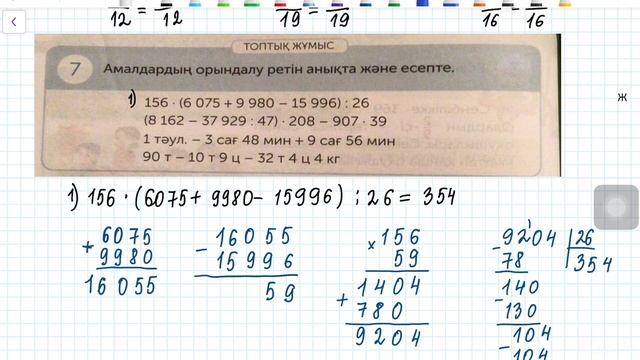 12 = 12 19 = 19 16 = 16
ТОПТЫҚ ЖҰМЫС
7 Амалдардың орындалу ретін анықта және есепте.
1) 156 · (6 075 + 9 980 – 15 996) : 26
(8 162 – 37 929 : 47) · 208 – 907 · 39
1 тәул. – 3 сағ 48 мин + 9 сағ 56 мин
90 т – 10 т 9 ц – 32 т 4 ц 4 кг
ж
1) 156 · (6075 + 9980 – 15996) : 26 = 354
+ 6075
9980
16055
– 16055
15996
59
× 156
59
1404
+ 780
9204
– 9204 26
78 354
– 140
130
– 104
104